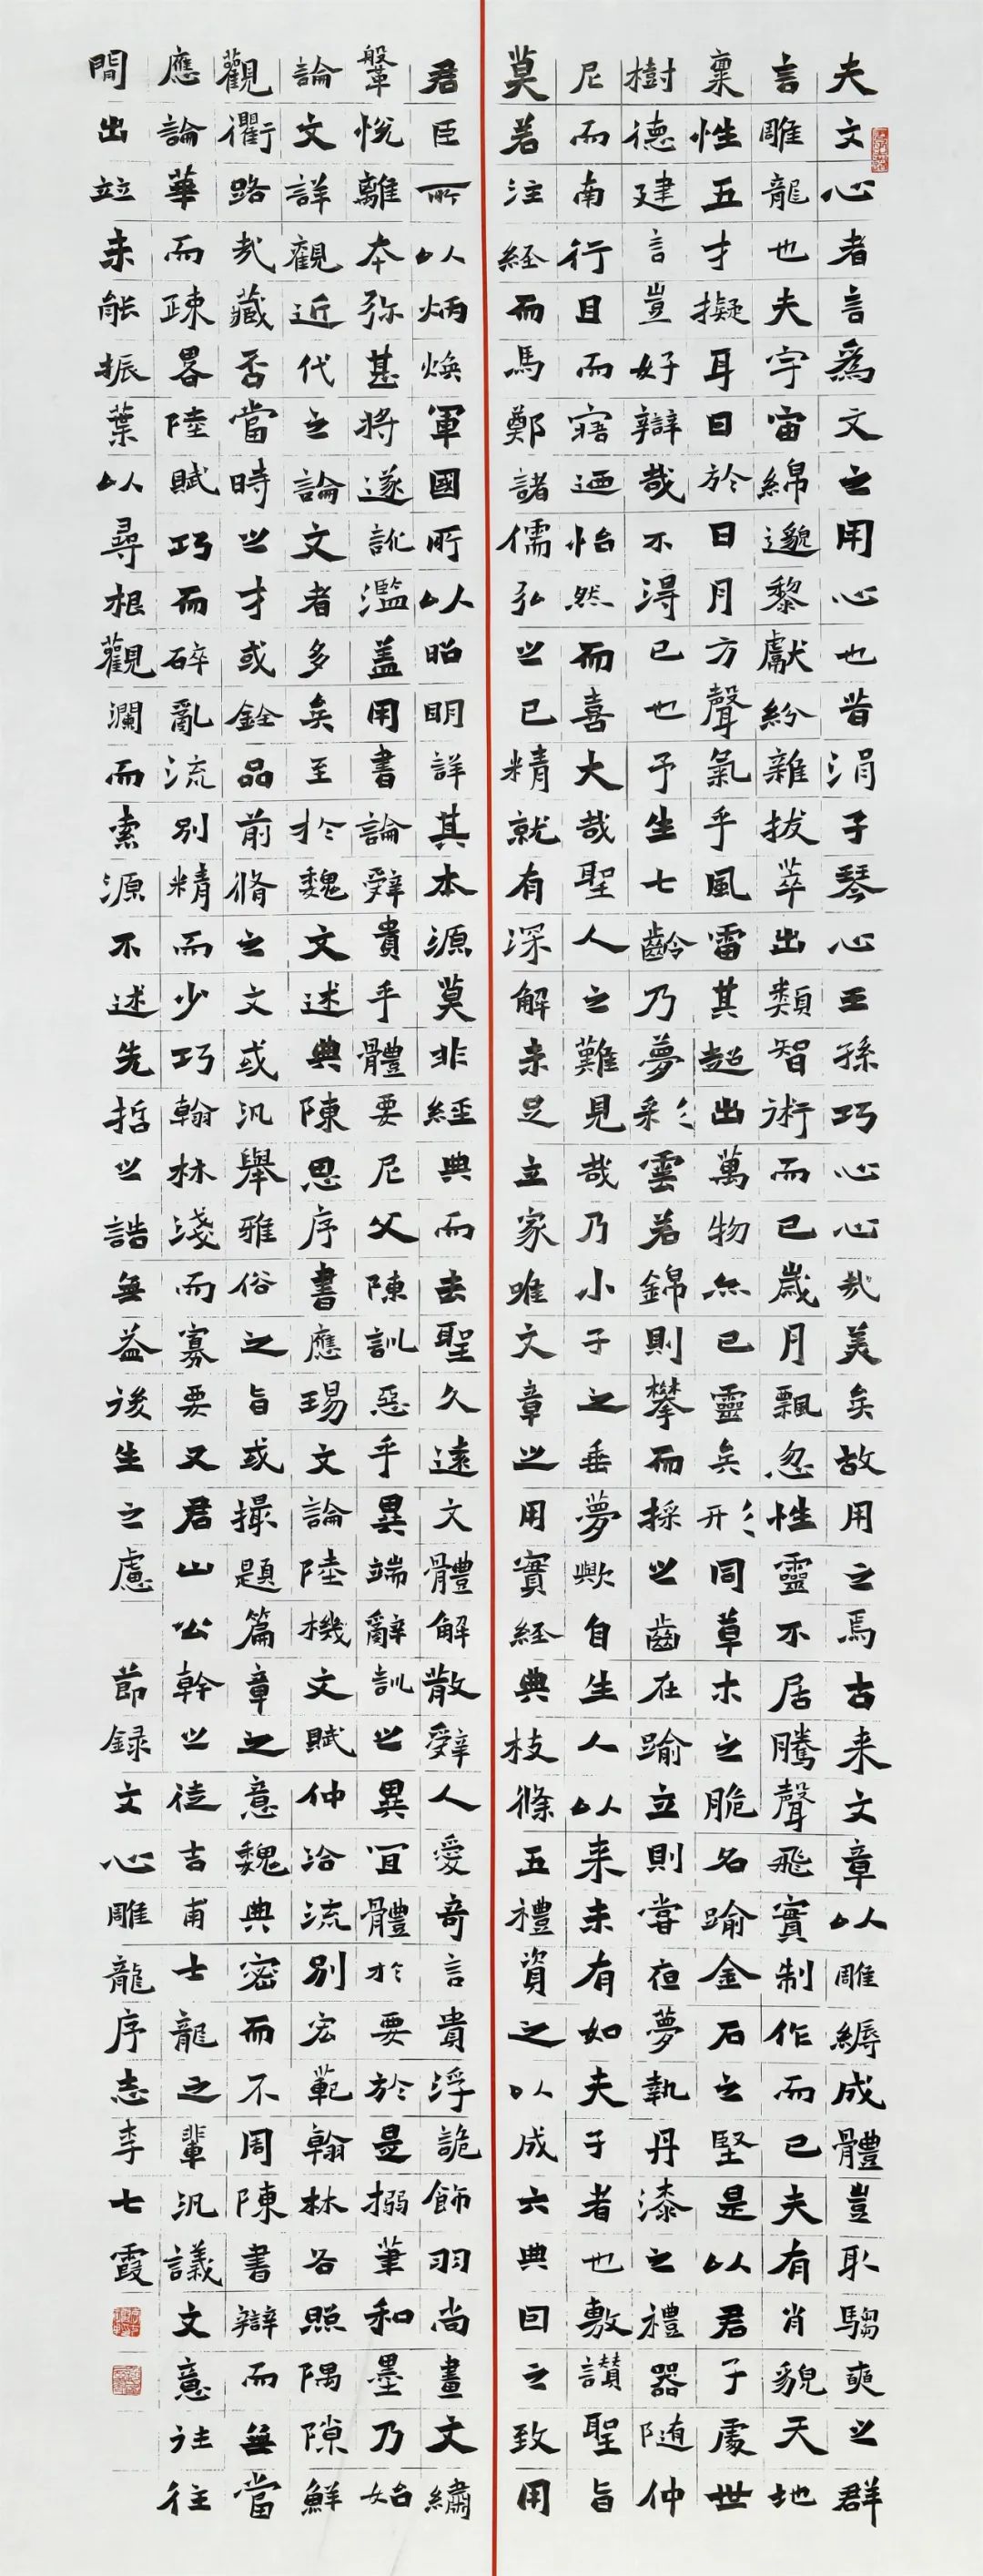 夫文心者言爲文之用心也昔涓子琴心王孫巧心心哉美矣故用之焉古来文章以雕縟成體豈取騶奭之群
言雕龍也夫宇宙綿邈黎獻紛雜拔萃出類智術而已歲月飄忽性靈不居騰聲飛實制作而已夫有肖貌天地
稟性五才擬耳目於日月方聲氣乎風雷其超出萬物亦已靈矣形同草木之脆名踰金石之堅是以君子處世
樹德建言豈好辯哉不得已也予生七齡乃夢彩雲若錦則攀而採之齒在踰立則嘗夜夢執丹漆之禮器随仲
尼而南行旦而寤迺怡然而喜大哉聖人之難見哉乃小子之垂夢歟自生人以来未有如夫子者也敷讃聖旨
莫若注経而馬鄭諸儒弘之已精就有深解未足立家唯文章之用實経典枝條五禮資之以成六典因之致用
君臣所以炳煥軍國所以昭明詳其本源莫非經典而去聖久遠文體解散辤人愛奇言貴浮詭飾羽尚畫文繡
鞶悅離本弥甚將遂訛濫盖用書論辤貴乎體要尼父陳訓惡乎異端辭訓之異宜體於要於是搦筆和墨乃始
論文詳觀近代之論文者多矣至於魏文述典陳思序書應瑒文論陸機文賦仲洽流別宏範翰林各照隅隙鮮
觀衢路或藏否當時之才或銓品前脩之文或汎舉雅俗之旨或撮題篇章之意魏典密而不周陳書辯而無當
應論華而疎畧陸賦巧而碎亂流別精而少巧翰林淺而寡要又君山公幹之徒吉甫士龍之輩汎議文意往往
間出竝未能振葉以尋根觀瀾而索源不述先哲之誥無益後生之慮
節録文心雕龍序志李七霞